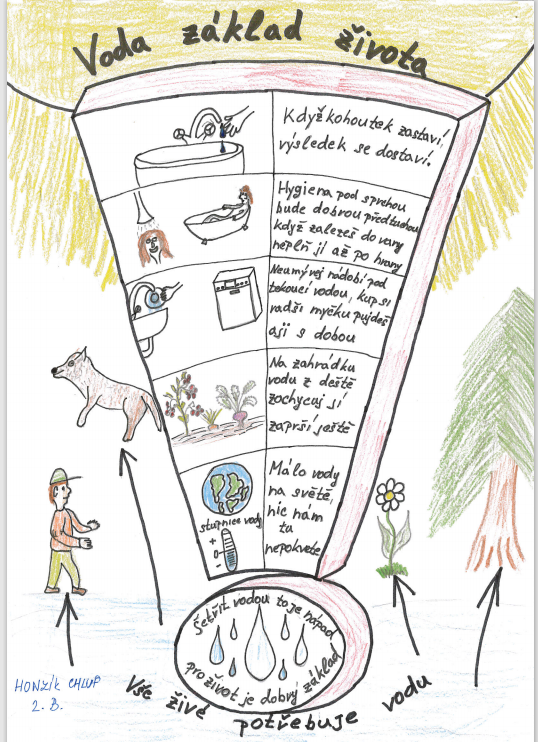 Voda základ života
Když kohoutek zastaví,
výsledek se dostaví.
Hygiena pod sprchou
bude dobrou předtuchou
když zalezeš do vany
neplň jí až po hrany
Neumývej nádobí pod
tekoucí vodou, kup si
radši myčku pujdeš
asi s dobou
Na zahrádku
vodu z deště
zachycuj jí
zaprší ještě
Málo vody
na světě,
nic nám
tu
nepokvete
stupnice vody
+
0
-
Šetřit vodou to je nápad
pro život je dobrý základ
HONZÍK CHLUP
2. B.
Vše živé potřebuje vodu